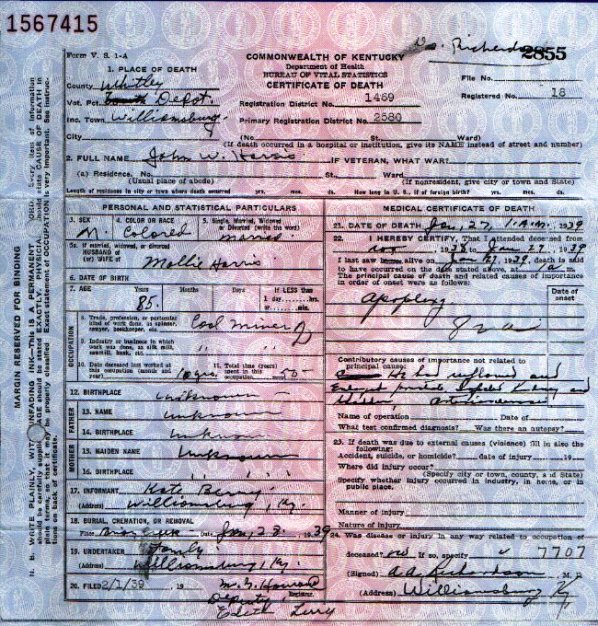 1567415
Form V. S. 1-A
COMMONWEALTH OF KENTUCKY
Department of Health
BUREAU OF VITAL STATISTICS
CERTIFICATE OF DEATH
2855
File No.
Registered No. 18
1. PLACE OF DEATH
County Whitley
Vot. Pct. Depot
Inc. Town Williamsburg
City
Registration District No. 1469
Primary Registration District No. 2580
(No St. Ward)
(If death occurred in a hospital or institution, give its NAME instead of street and number)
2. FULL NAME John W. Harris IF VETERAN, WHAT WAR?
(a) Residence. No. St. Ward
(Usual place of abode) (If nonresident, give city or town and State)
Length of residence in city or town where death occurred yrs. mos. ds. How long in U. S., if of foreign birth? yrs. mos. ds.
MARGIN RESERVED FOR BINDING
PERSONAL AND STATISTICAL PARTICULARS
3. SEX M.
4. COLOR OR RACE Colored
5. Single, Married, Widowed or Divorced (write the word) married
5a. If married, widowed, or divorced
HUSBAND of
(or) WIFE of Mollie Harris
6. DATE OF BIRTH
7. AGE Years Months Days If LESS than
85. 1 day hrs.
or min.
OCCUPATION
8. Trade, profession, or particular kind of work done, as spinner, sawyer, bookkeeper, etc. Coal miner
9. Industry or business in which work was done, as silk mill, sawmill, bank, etc.
10. Date deceased last worked at this occupation (month and year) 10 yrs.
11. Total time (years) spent in this occupation 50
12. BIRTHPLACE unknown
FATHER
13. NAME unknown
14. BIRTHPLACE unknown
MOTHER
15. MAIDEN NAME unknown
16. BIRTHPLACE
17. INFORMANT Kate Berry
(Address) Williamsburg, Ky.
18. BURIAL, CREMATION, OR REMOVAL
Place Date Jan. 28. 1939
19. UNDERTAKER Family
(Address) Williamsburg, Ky.
20. FILED 2/1/39 19
Deputy
Edith
MEDICAL CERTIFICATE OF DEATH
21. DATE OF DEATH Jan, 27, 1 A.M. 1939
22. I HEREBY CERTIFY, That I attended deceased from
1938 Jan 27 1939
I last saw alive on Jan 27 1939, death is said
to have occurred on the date stated above, at
The principal cause of death and related causes of importance
in order of onset were as follows:
Date of onset
Apoplexy
Contributory causes of importance not related to
principal cause:
He had
and
Name of operation Date of
What test confirmed diagnosis? Was there an autopsy?
23. If death was due to external causes (violence) fill in also the following:
Accident, suicide, or homicide? date of injury 19
Where did injury occur?
(Specify city or town, county, and State)
Specify whether injury occurred in industry, in home, or in public place.
Manner of injury
Nature of injury
24. Was disease or injury in any way related to occupation of
deceased? no If so, specify 7707
(Signed) A. A. Richardson M. D.
(Address) Williamsburg Ky.